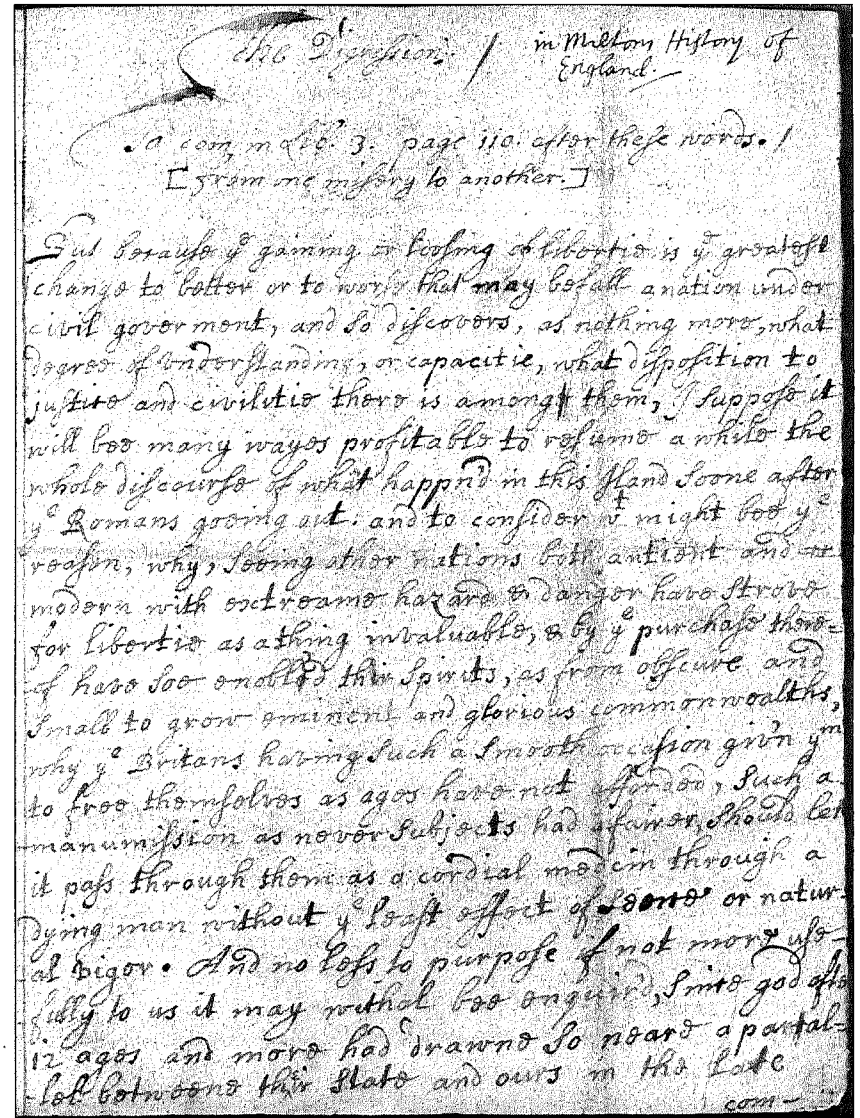 The Digression. / in Miltons History of
England.
To com in Lib. 3. page 110. after these words. /
[from one misery to another.]
But because yᵉ gaining or loosing of libertie is yᵉ greatest
change to better or to worse that may befall a nation under
civil goverment, and so discovers, as nothing more, what
degree of understanding, or capacitie, what disposition to
justice and civilitie there is among them, I suppose it
will bee many wayes profitable to resume a while the
whole discourse of what happn'd in this Iland soone after
yᵉ Romans goeing out. and to consider wᵗ might bee yᵉ
reason, why, seeing other nations both antient and
modern with extreame hazard & danger have strove
for libertie as a thing invaluable, & by yᵉ purchase there-
of have soe enobl'd thir spirits, as from obscure and
small to grow eminent and glorious commonwealths,
why yᵉ Britans having such a smooth occasion giv'n yᵐ
to free themselves as ages have not afforded, such a
manumission as never subjects had a fairer, should let
it pass through them as a cordial medcin through a
dying man without yᵉ least effect of sence or natur-
al vigor. And no less to purpose if not more use-
fully to us it may withal bee enquir'd, since god after
12 ages and more had drawne so neare a paral-
lel betweene thir state and ours in the late
com-